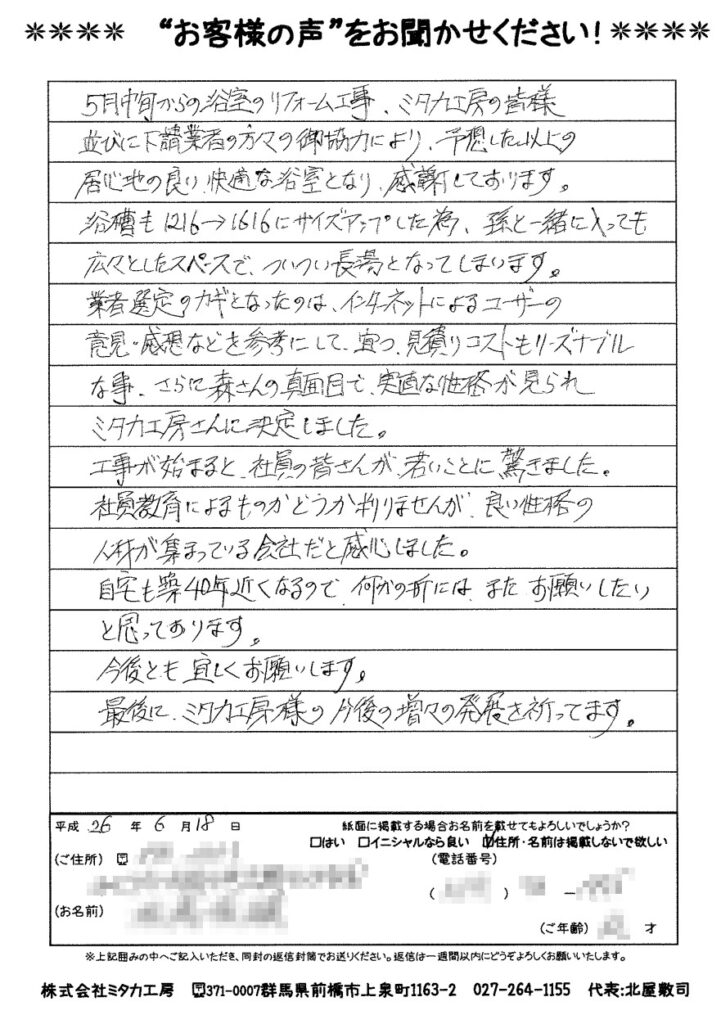 **** “お客様の声”をお聞かせください！ ****
5月中旬からの浴室のリフォーム工事、ミタカ工房の皆様
並びに下請業者の方々の御協力により、予想した以上の
居心地の良い快適な浴室となり、感謝しております。
浴槽も1216→1616にサイズアップした為、孫と一緒に入っても
広々としたスペースで、ついつい長湯となってしまいます。
業者選定のカギとなったのは、インターネットによるユーザーの
意見・感想などを参考にして、且つ、見積りコストもリーズナブル
な事、さらに森さんの真面目で、実直な性格が見られ
ミタカ工房さんに決定しました。
工事が始まると、社員の皆さんが、若いことに驚きました。
社員教育によるものかどうか判りませんが、良い性格の
人材が集まっている会社だと感心しました。
自宅も築40年近くなるので、何かの折には、また お願いしたい
と思っております。
今後とも 宜しくお願いします。
最後に、ミタカ工房様の今後の増々の発展を祈ってます。
平成 26 年 6 月 18 日
紙面に掲載する場合お名前を載せてもよろしいでしょうか？
□はい □イニシャルなら良い ☑住所・名前は掲載しないで欲しい
(ご住所) 〒
(電話番号)
( ) －
(お名前)
(ご年齢) 才
※上記囲みの中へご記入いただき、同封の返信封筒でお送りください。返信は一週間以内にどうぞよろしくお願いいたします。
株式会社ミタカ工房 〒371-0007群馬県前橋市上泉町1163-2 027-264-1155 代表:北屋敷司